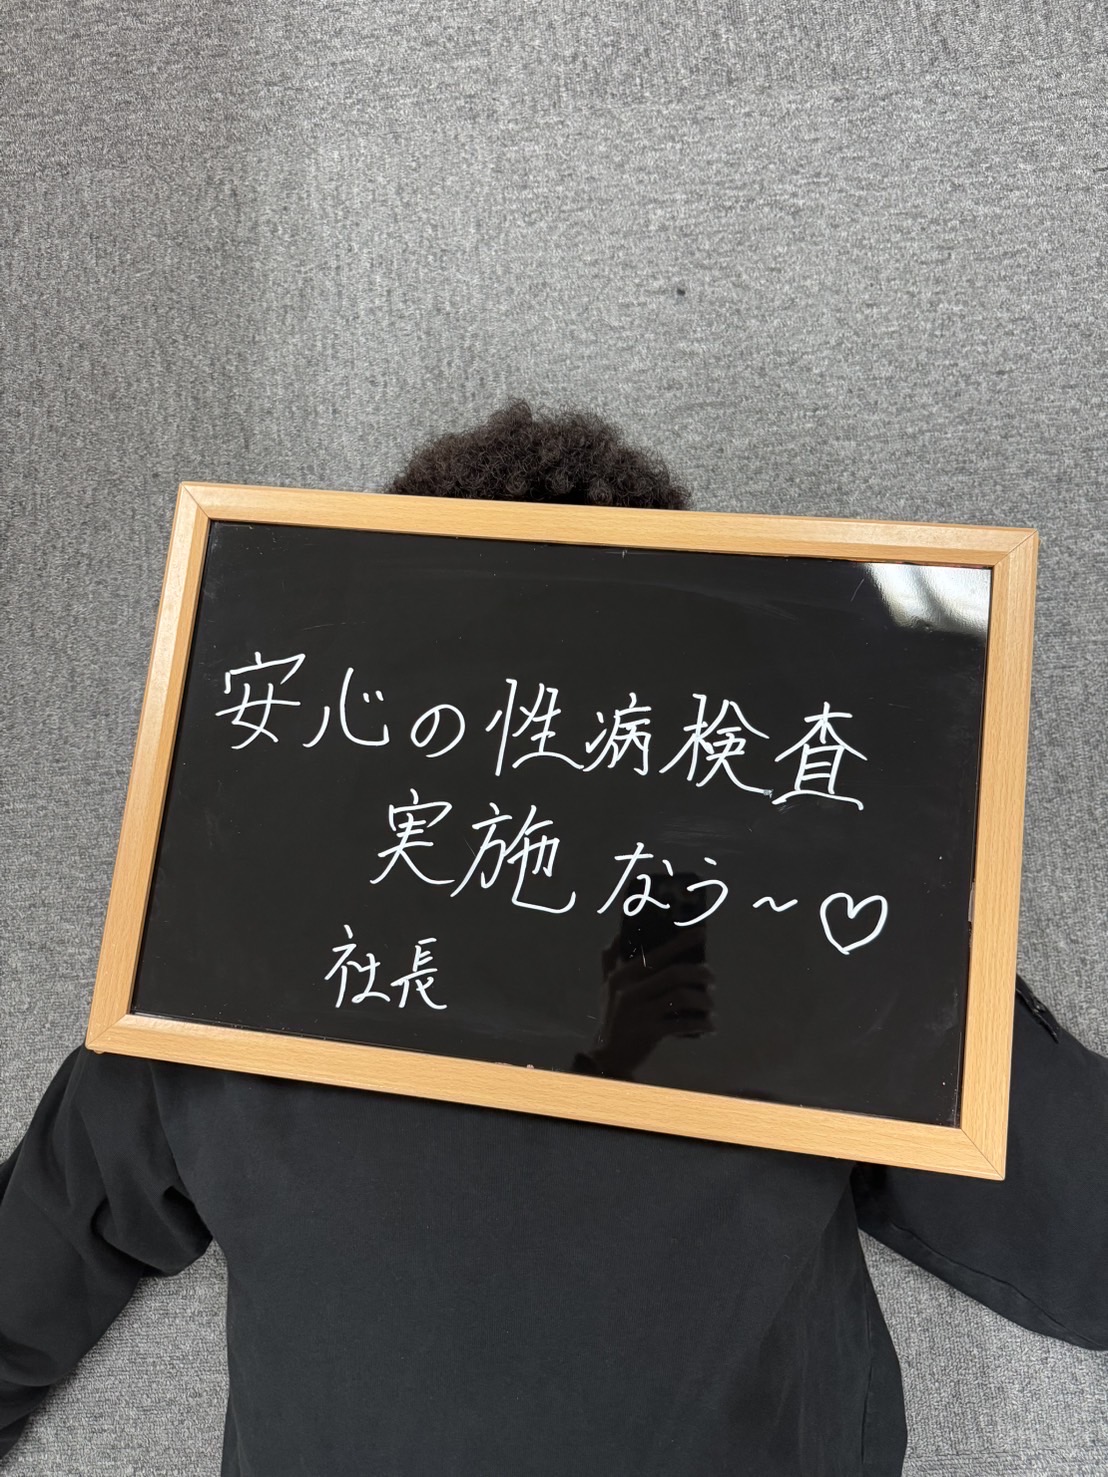 安心の性病検査
実施なう～♡
社長